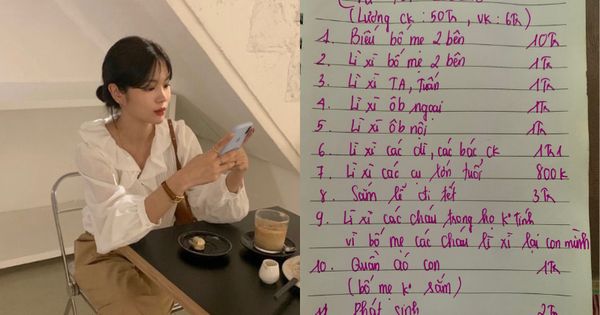 (Lương ck : 50Tr, vk : 6Tr)
1. Biếu bố mẹ 2 bên 10Tr
2. Lì xì bố mẹ 2 bên 1Tr
3. Lì xì TA, Tuấn 1Tr
4. Lì xì ôb ngoại 1Tr
5. Lì xì ôb nội 1Tr
6. Lì xì các dì, các bác ck 1Tr1
7. Lì xì các cụ lớn tuổi 800K
8. Sắm lễ đi tết 3Tr
9. Lì xì các cháu trong họ k° tính
vì bố mẹ các cháu lì xì lại con mình
10. Quần áo con 1Tr
(bố mẹ k° sắm)
11. Phát sinh 2Tr